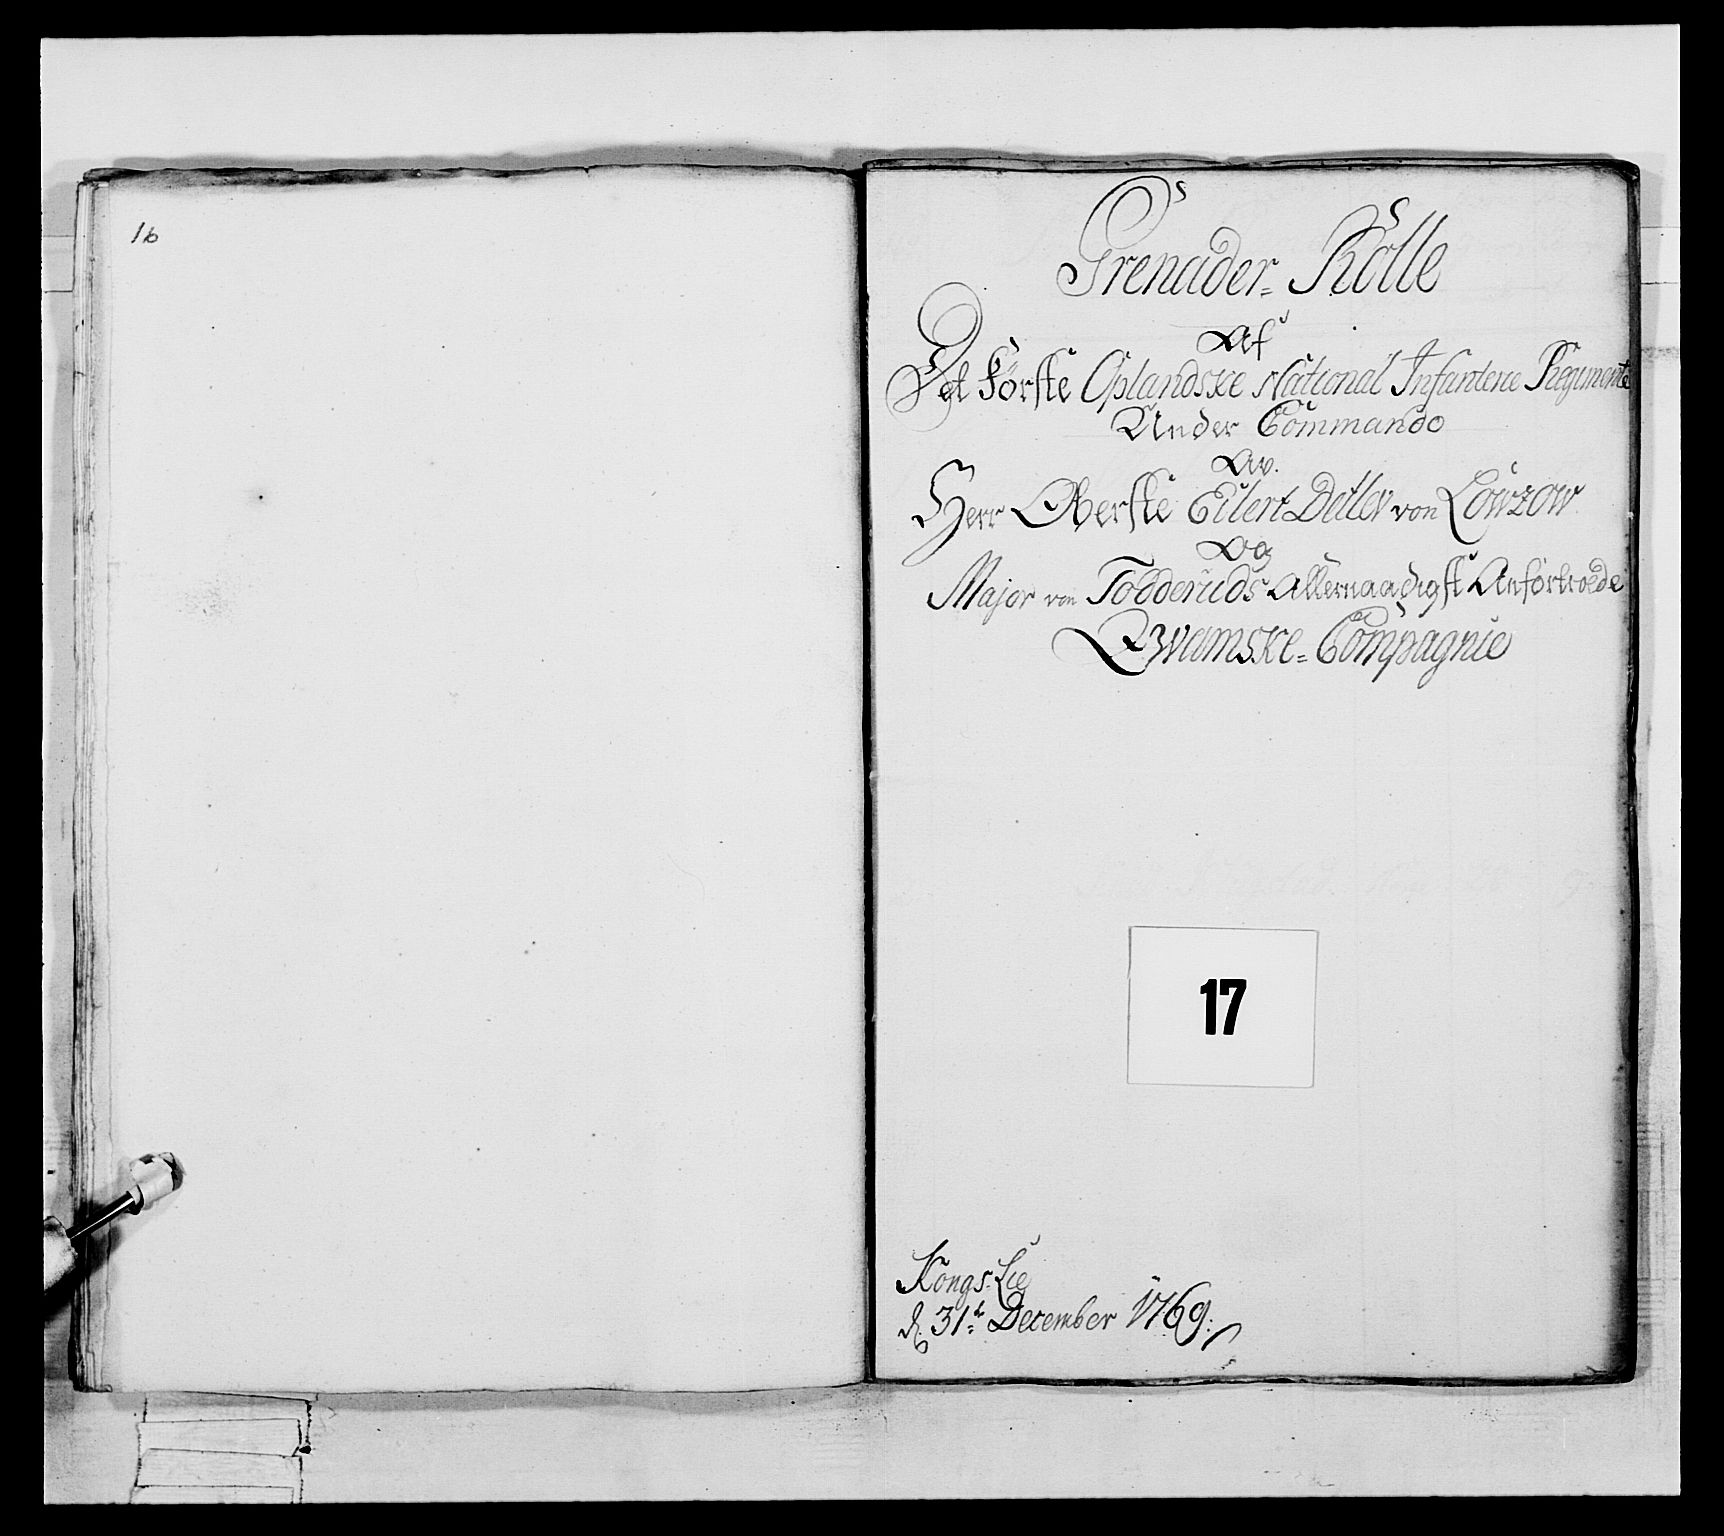 16
Grenader= Rolle
Af
Det Förste Oplandske National Infanterie Regimente
Under Commando
Av.
Herr Oberste Eilert Detlev von Löwzow
Og
Major von Todderuds Allernaadigst Anfortroede
Qwamske= Compagnie
17
Kongs Lie
d. 31te December 1769.